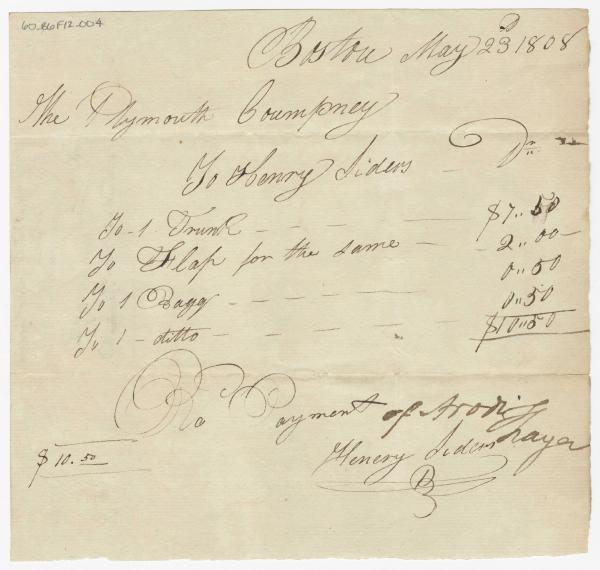 60.B6F12.004
Boston May 23d 1808
The Plymouth Coumpney
To Henry Siders Dr
To 1 Trunk $7..50
To Flap for the same 2..00
To 1 Bagg 0..50
To 1 ditto 0..50
$10..50
Recd Payment of Arodi Thayer
$10.50
Henery Siders